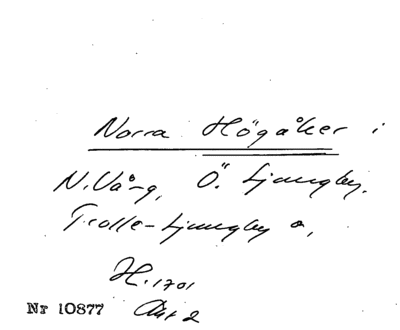 Norra Högåker i
N. Vång, Ö. Ljungby,
Trolle-Ljungby s,
H. 1701
Akt 2
Nr 10877